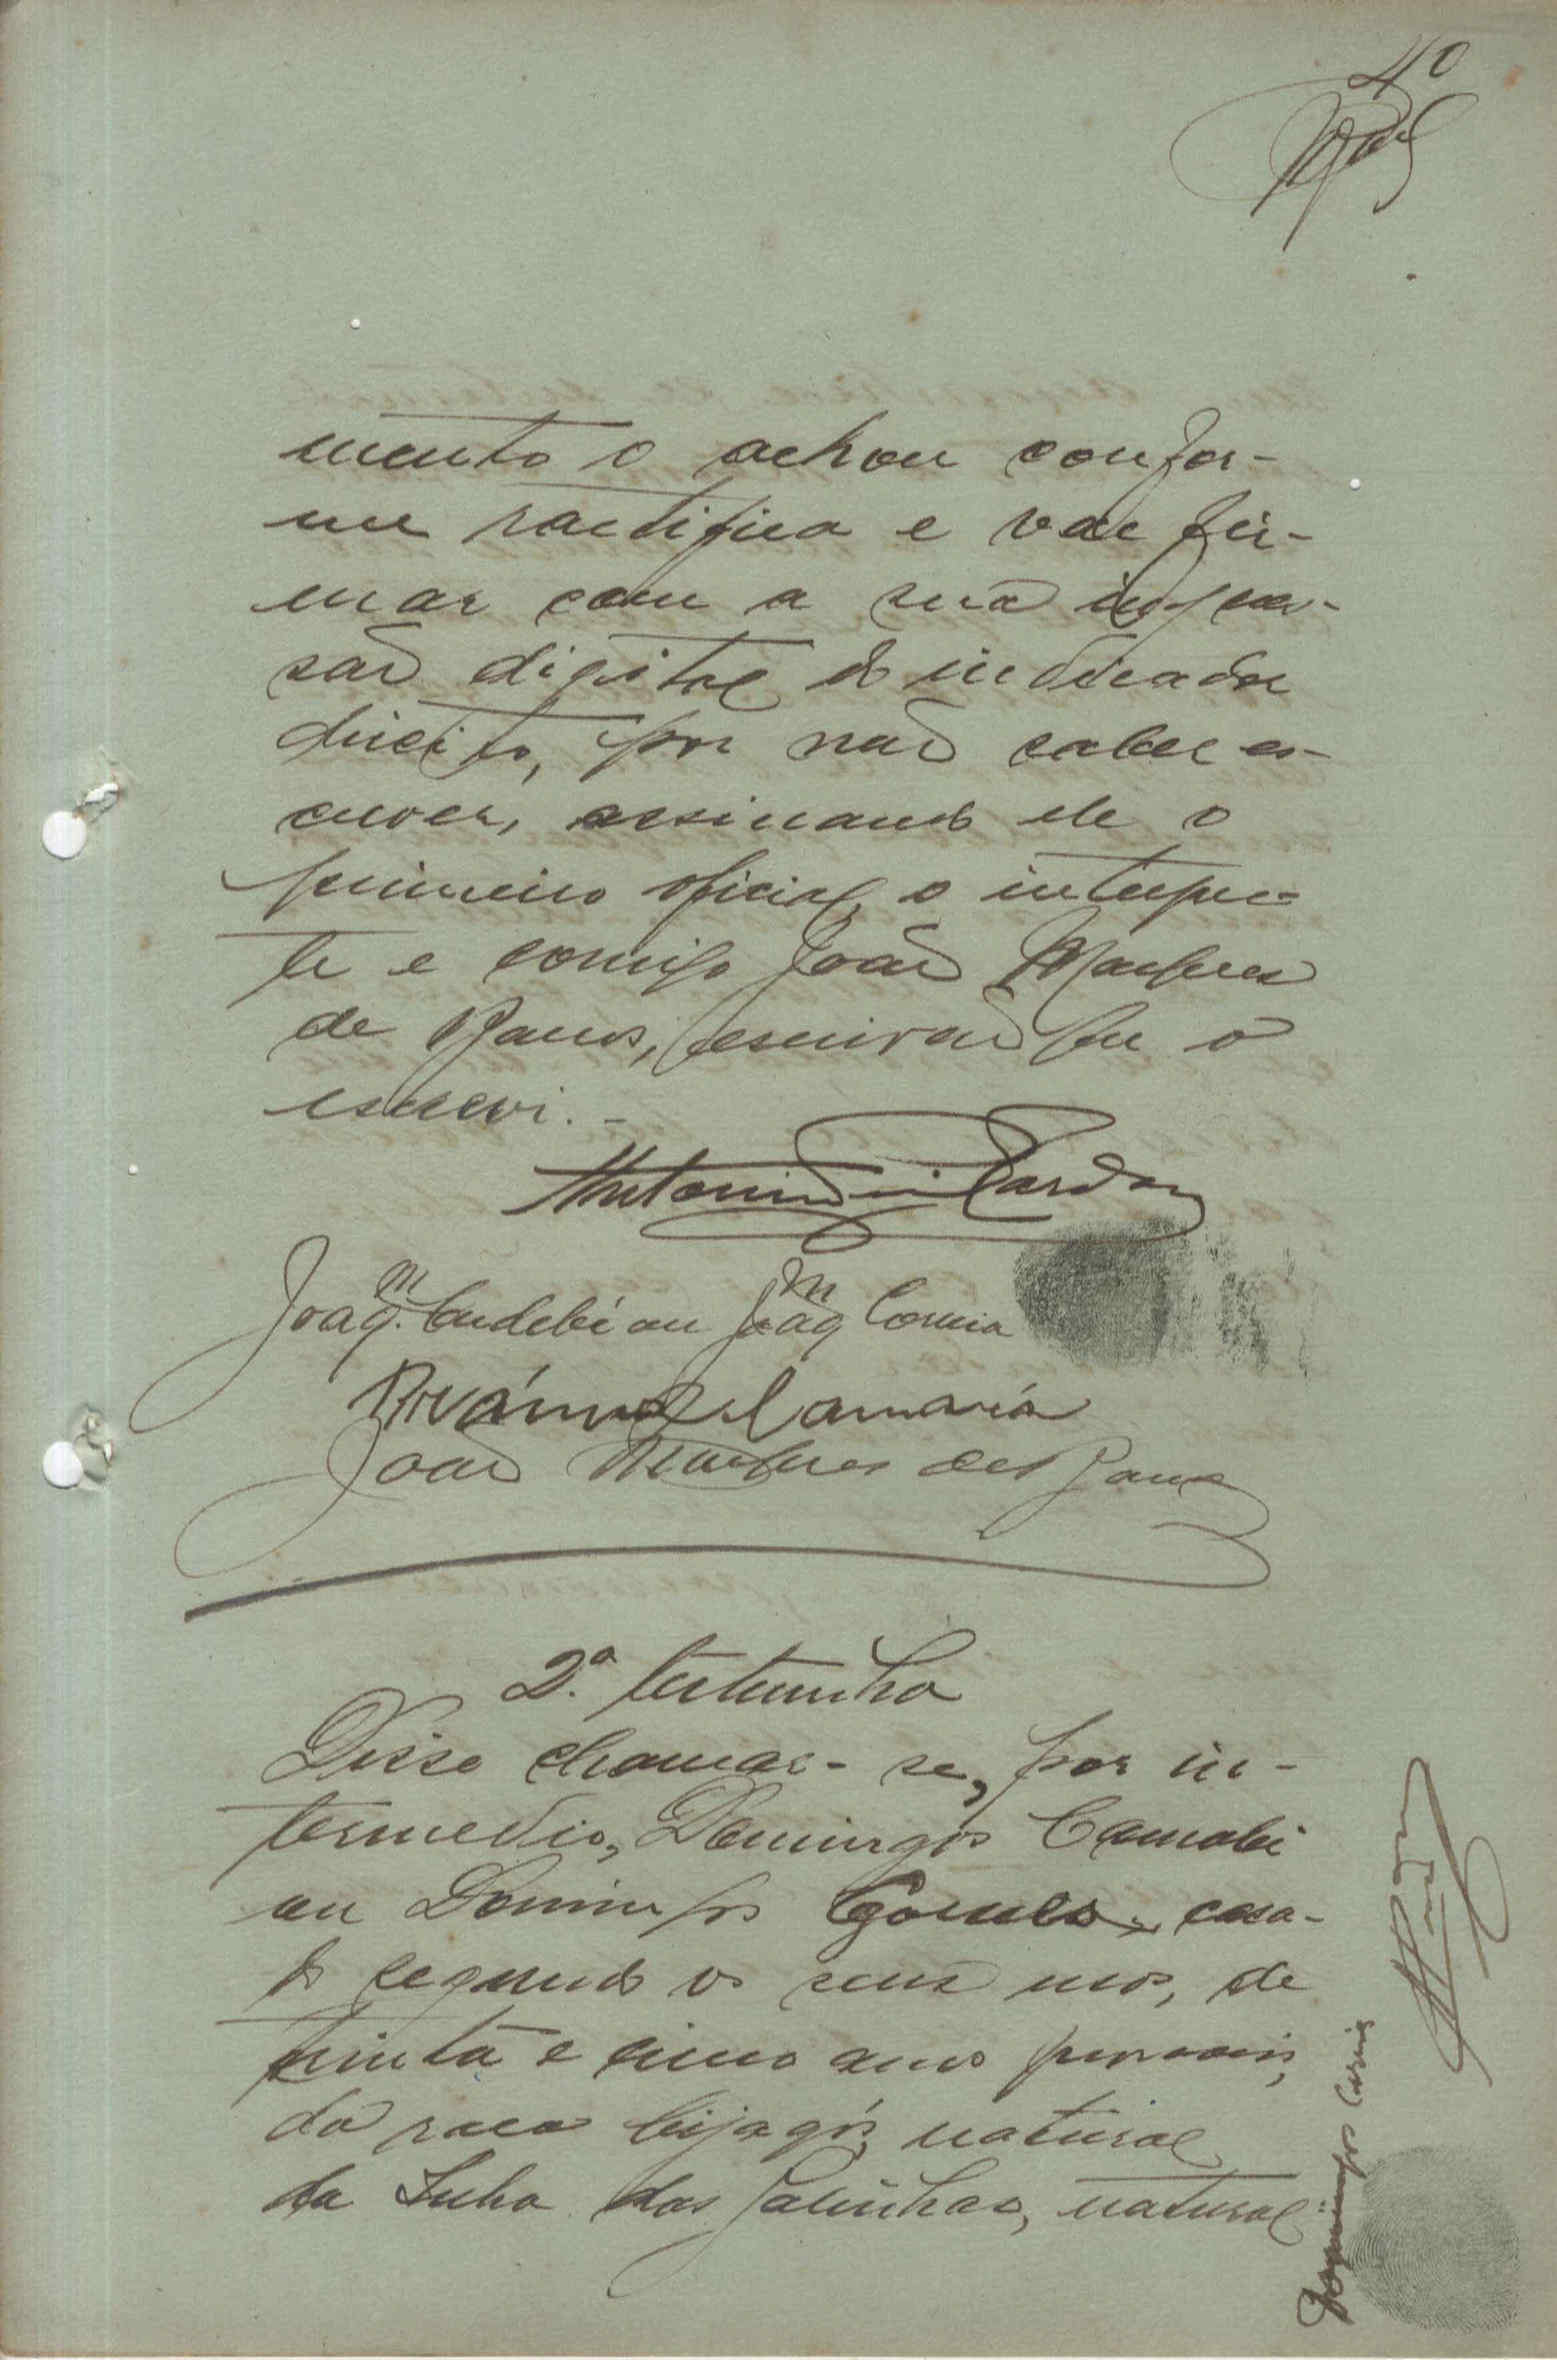 40
mento o achou confor-
me ractifica e vae fir-
mar com a sua impres-
saõ digital do indicador
direito, por naõ saber es-
crever, assinando ele o
primeiro oficial, o interpre-
te e comigo Joaõ Marques
de Barros, escrivaõ que o
escrevi.-
Antonio Cardoso
Joaq.m ou Joaq.m Correia
Camará
Joaõ Marques de Barros
2.ª testemunha
Disse chamar-se, por in-
termedio, Domingos Camabi
ou Domingos Gomes, casa-
do segundo os seus usos, de
trinta e cinco anos provaveis,
da raca bijagós, natural
da Ilha das Galinhas, natural